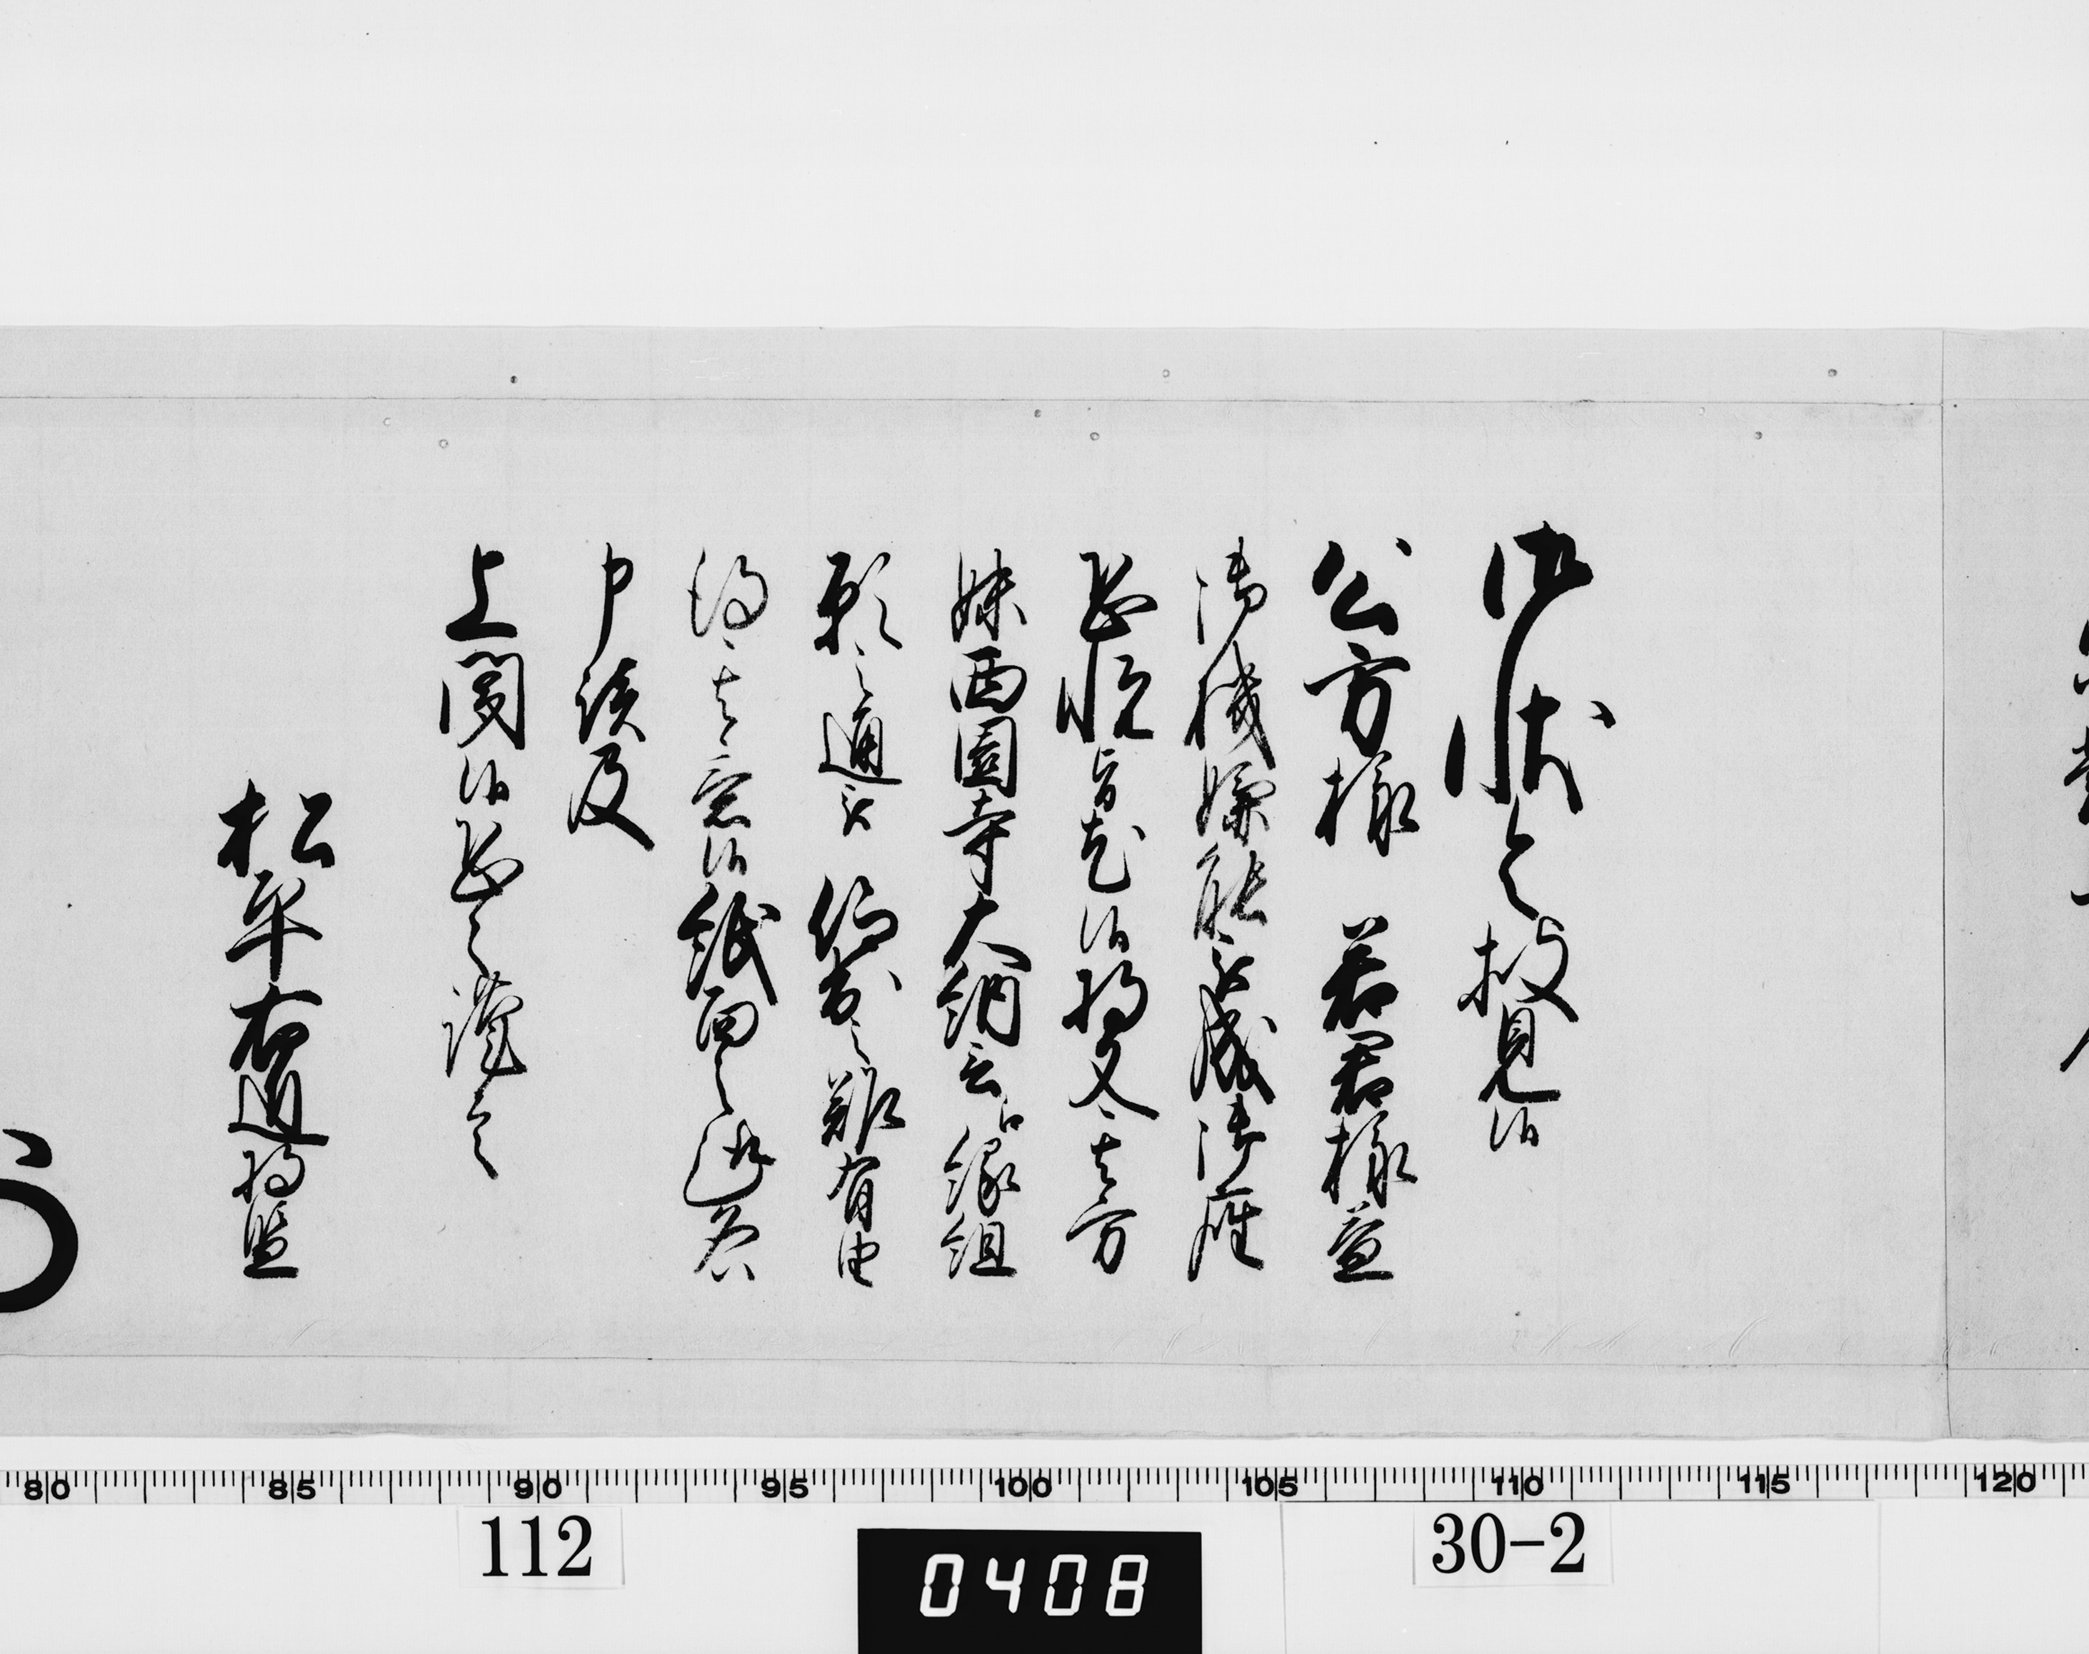 御状令披見候
公方様 若君様益
御機嫌能被成御座
恐悦旨尤候将又其方
妹西園寺大納言江縁組
願之通被 仰出之難有由
得其意候紙面之趣各
申談及
上聞候恐々謹言
松平右近将監
80 85 90 95 100 105 110 115 120
112
0408
30-2